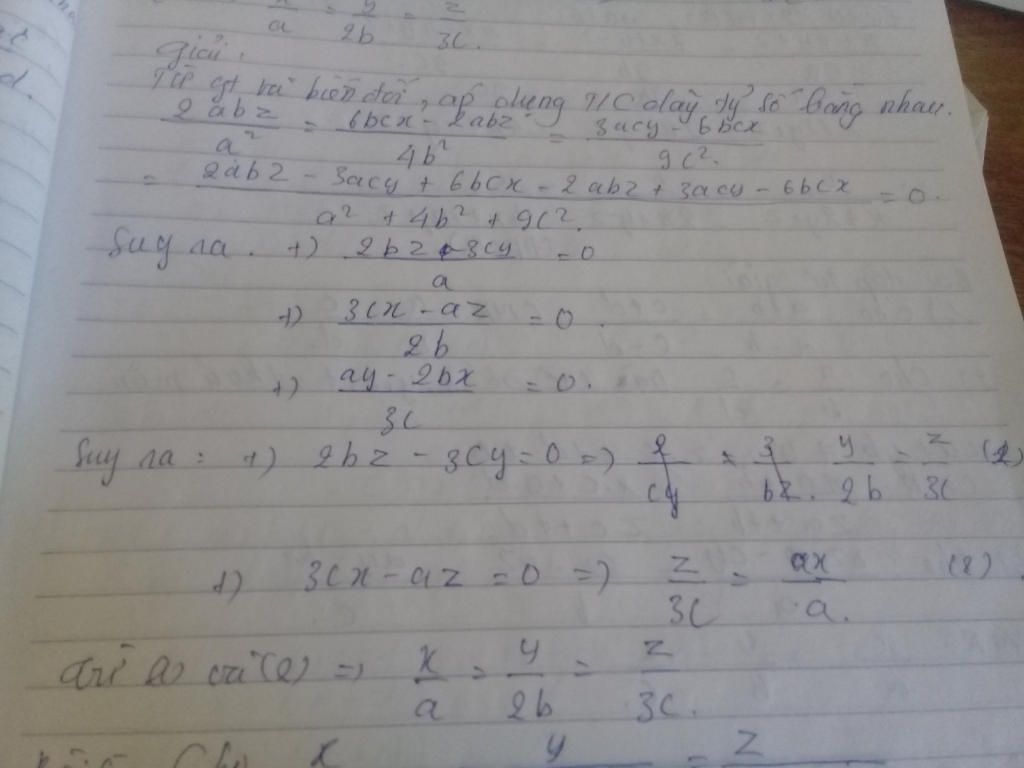 x/a = y/2b = z/3c.
Giải.
Từ gt và biến đổi, áp dụng T/C dãy tỷ số bằng nhau.
2abz/a² = 6bcx - 2abz/4b² = 3acy - 6bcx/9c².
= 2abz - 3acy + 6bcx - 2abz + 3acy - 6bcx/a² + 4b² + 9c². = 0.
Suy ra. +) 2bz - 3cy/a = 0
+) 3cx - az/2b = 0.
+) ay - 2bx/3c = 0.
Suy ra : +) 2bz - 3cy = 0 => y/2b = z/3c (1)
+) 3cx - az = 0 => z/3c = x/a. (2).
Từ (1) và (2) => x/a = y/2b = z/3c.
x y = z